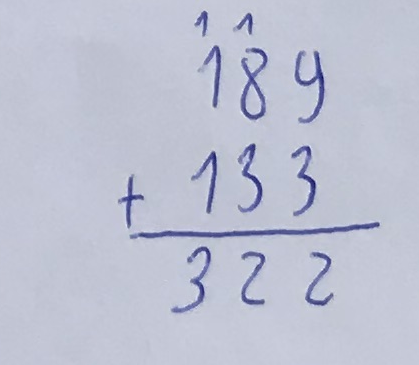 11
189
+ 133
322